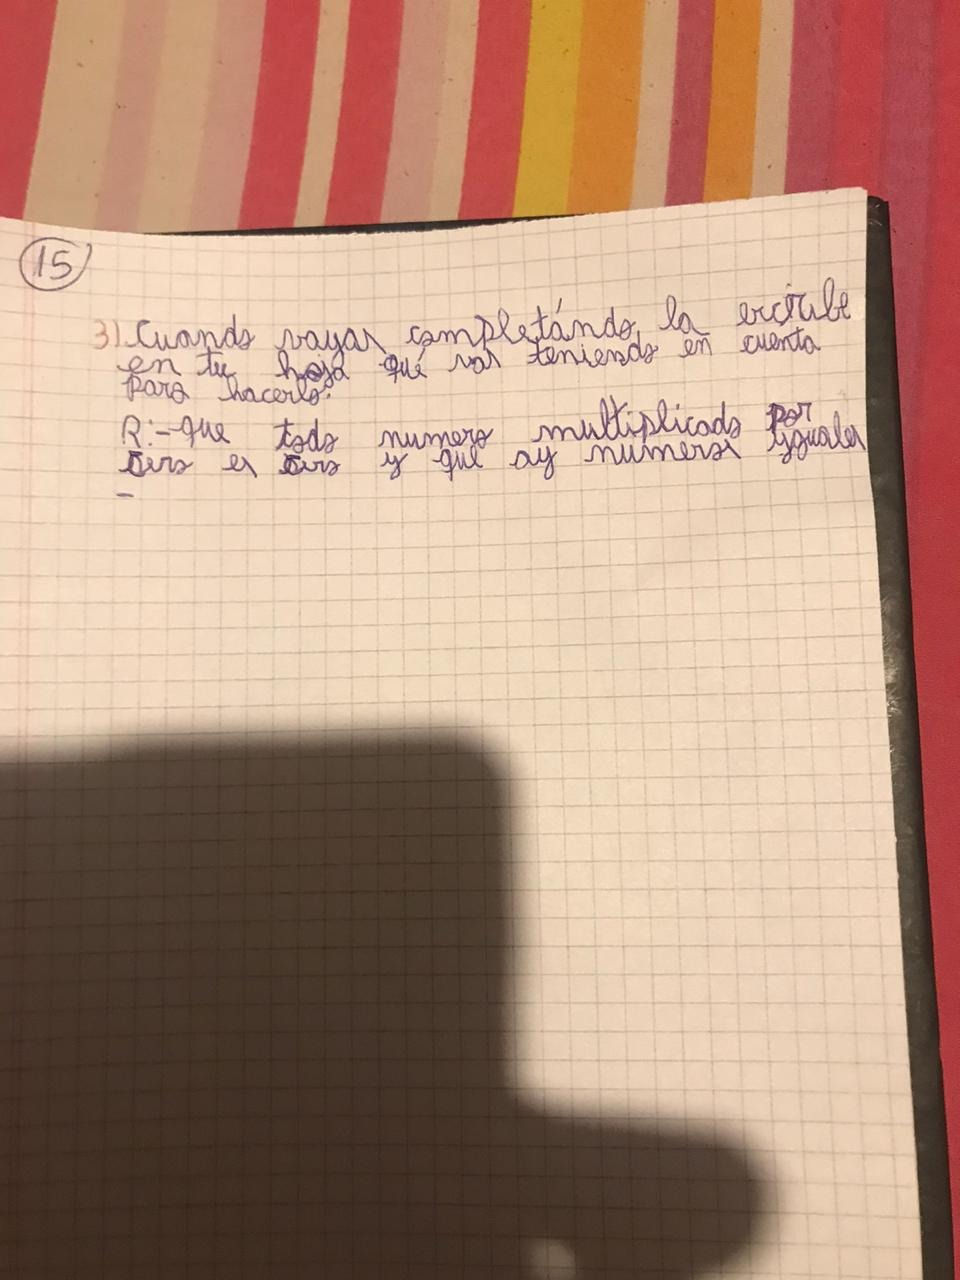 15
3) Cuando vayas completándo la escribe
en tu hoja qué vas teniendo en cuenta
para hacerlo:
R:-que todo numero multiplicado por
sero es sero y que ay numeros yguales
-